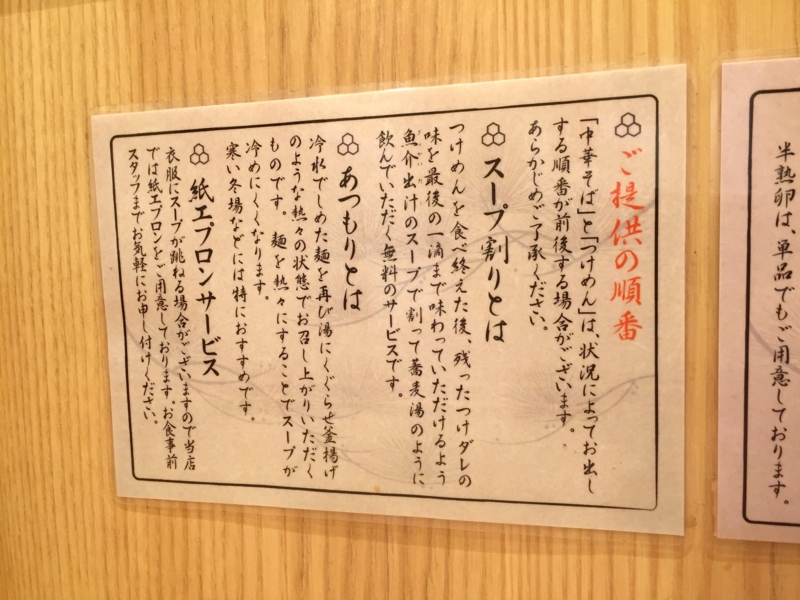 ご提供の順番
「中華そば」と「つけめん」は、状況によってお出し
する順番が前後する場合がございます。
あらかじめご了承ください。
スープ割りとは
つけめんを食べ終えた後、残ったつけダレの
味を最後の一滴まで味わっていただけるよう
魚介出汁のスープで割って蕎麦湯のように
飲んでいただく無料のサービスです。
あつもりとは
冷水でしめた麺を再び湯にくぐらせ釜揚げ
のような熱々の状態でお召し上がりいただく
ものです。麺を熱々にすることでスープが
冷めにくくなります。
寒い冬場などには特におすすめです。
紙エプロンサービス
衣服にスープが跳ねる場合がございますので当店
では紙エプロンをご用意しております。お食事前
スタッフまでお気軽にお申し付けください。
半熟卵は、単品でもご用意しております。